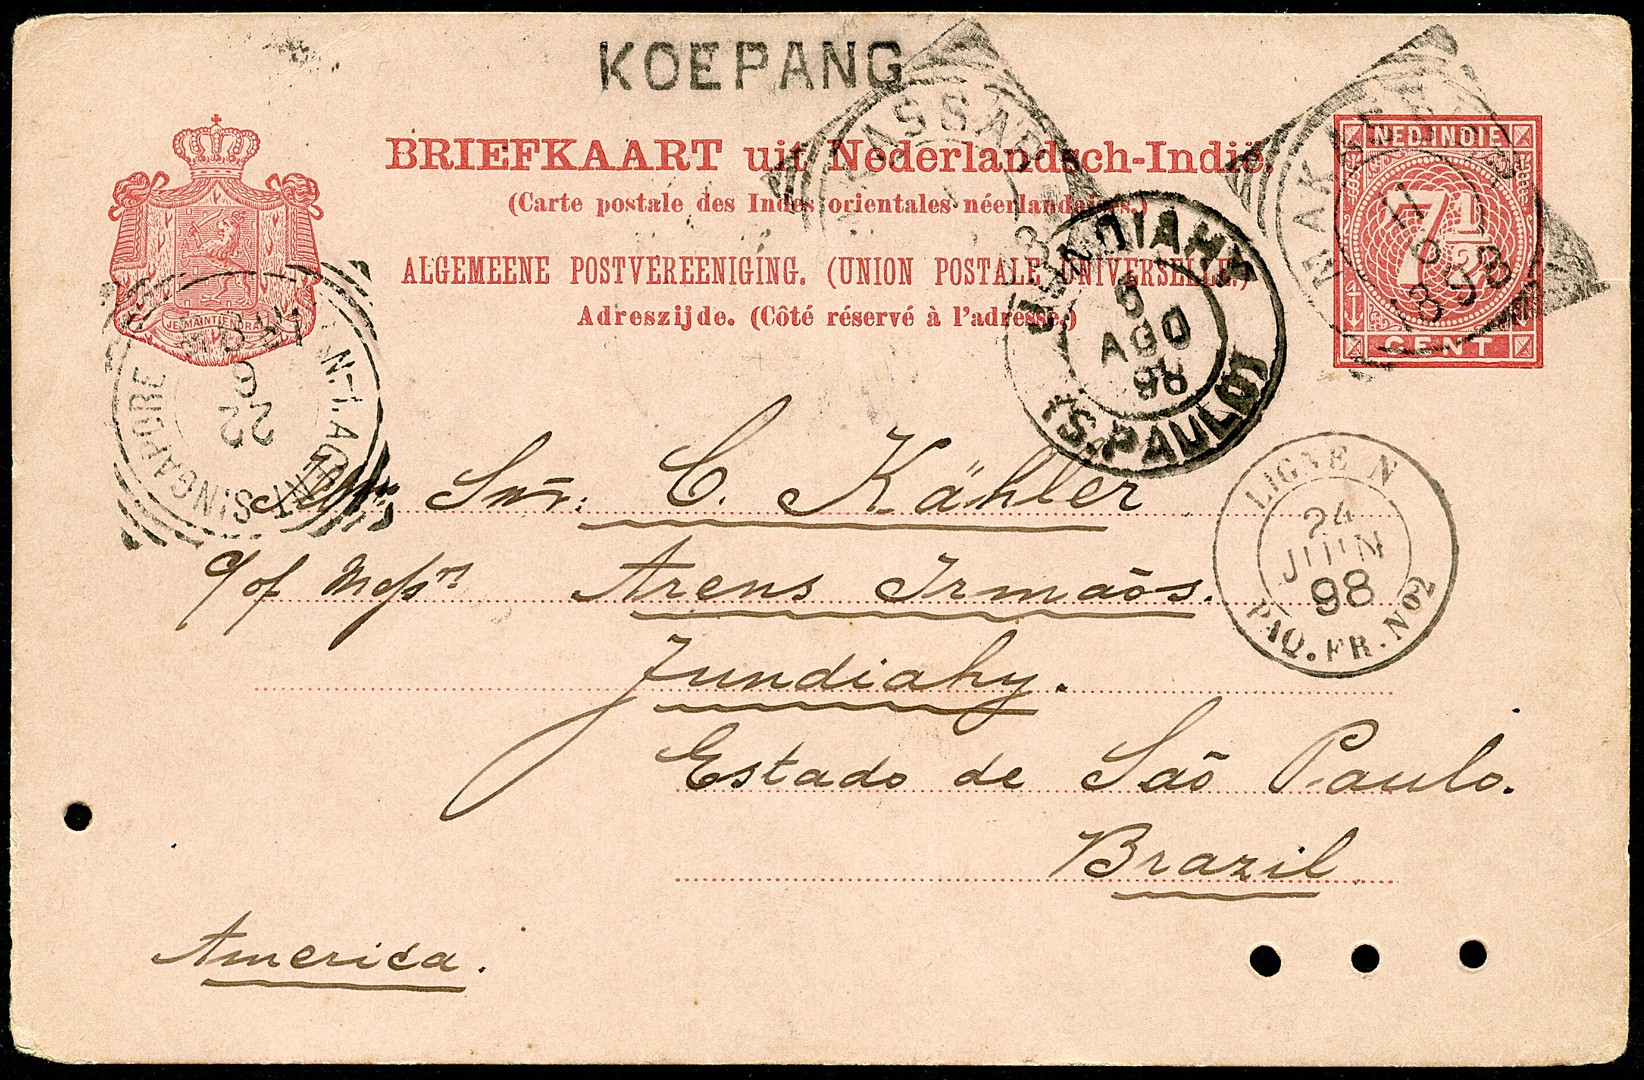 KOEPANG
BRIEFKAART uit Nederlandsch-Indië.
(Carte postale des Indes orientales néerlandaises.)
ALGEMEENE POSTVEREENIGING. (UNION POSTALE UNIVERSELLE.)
Adreszijde. (Côté réservé à l'adresse.)
JE MAINTIENDRAI
NED. INDIE
7 1/2
CENT
MAKASSAR
MAKASSAR
11
6
1898
JUNDIAHY
5
AGO
98
(S. PAULO)
N-I. AGENT SINGAPORE
22
6
LIGNE N
24
JUIN
98
PAQ. FR. No 2
C. Kähler
c/of Messrs Arens Irmãos.
Jundiahy.
Estado de São Paulo.
Brazil.
America.